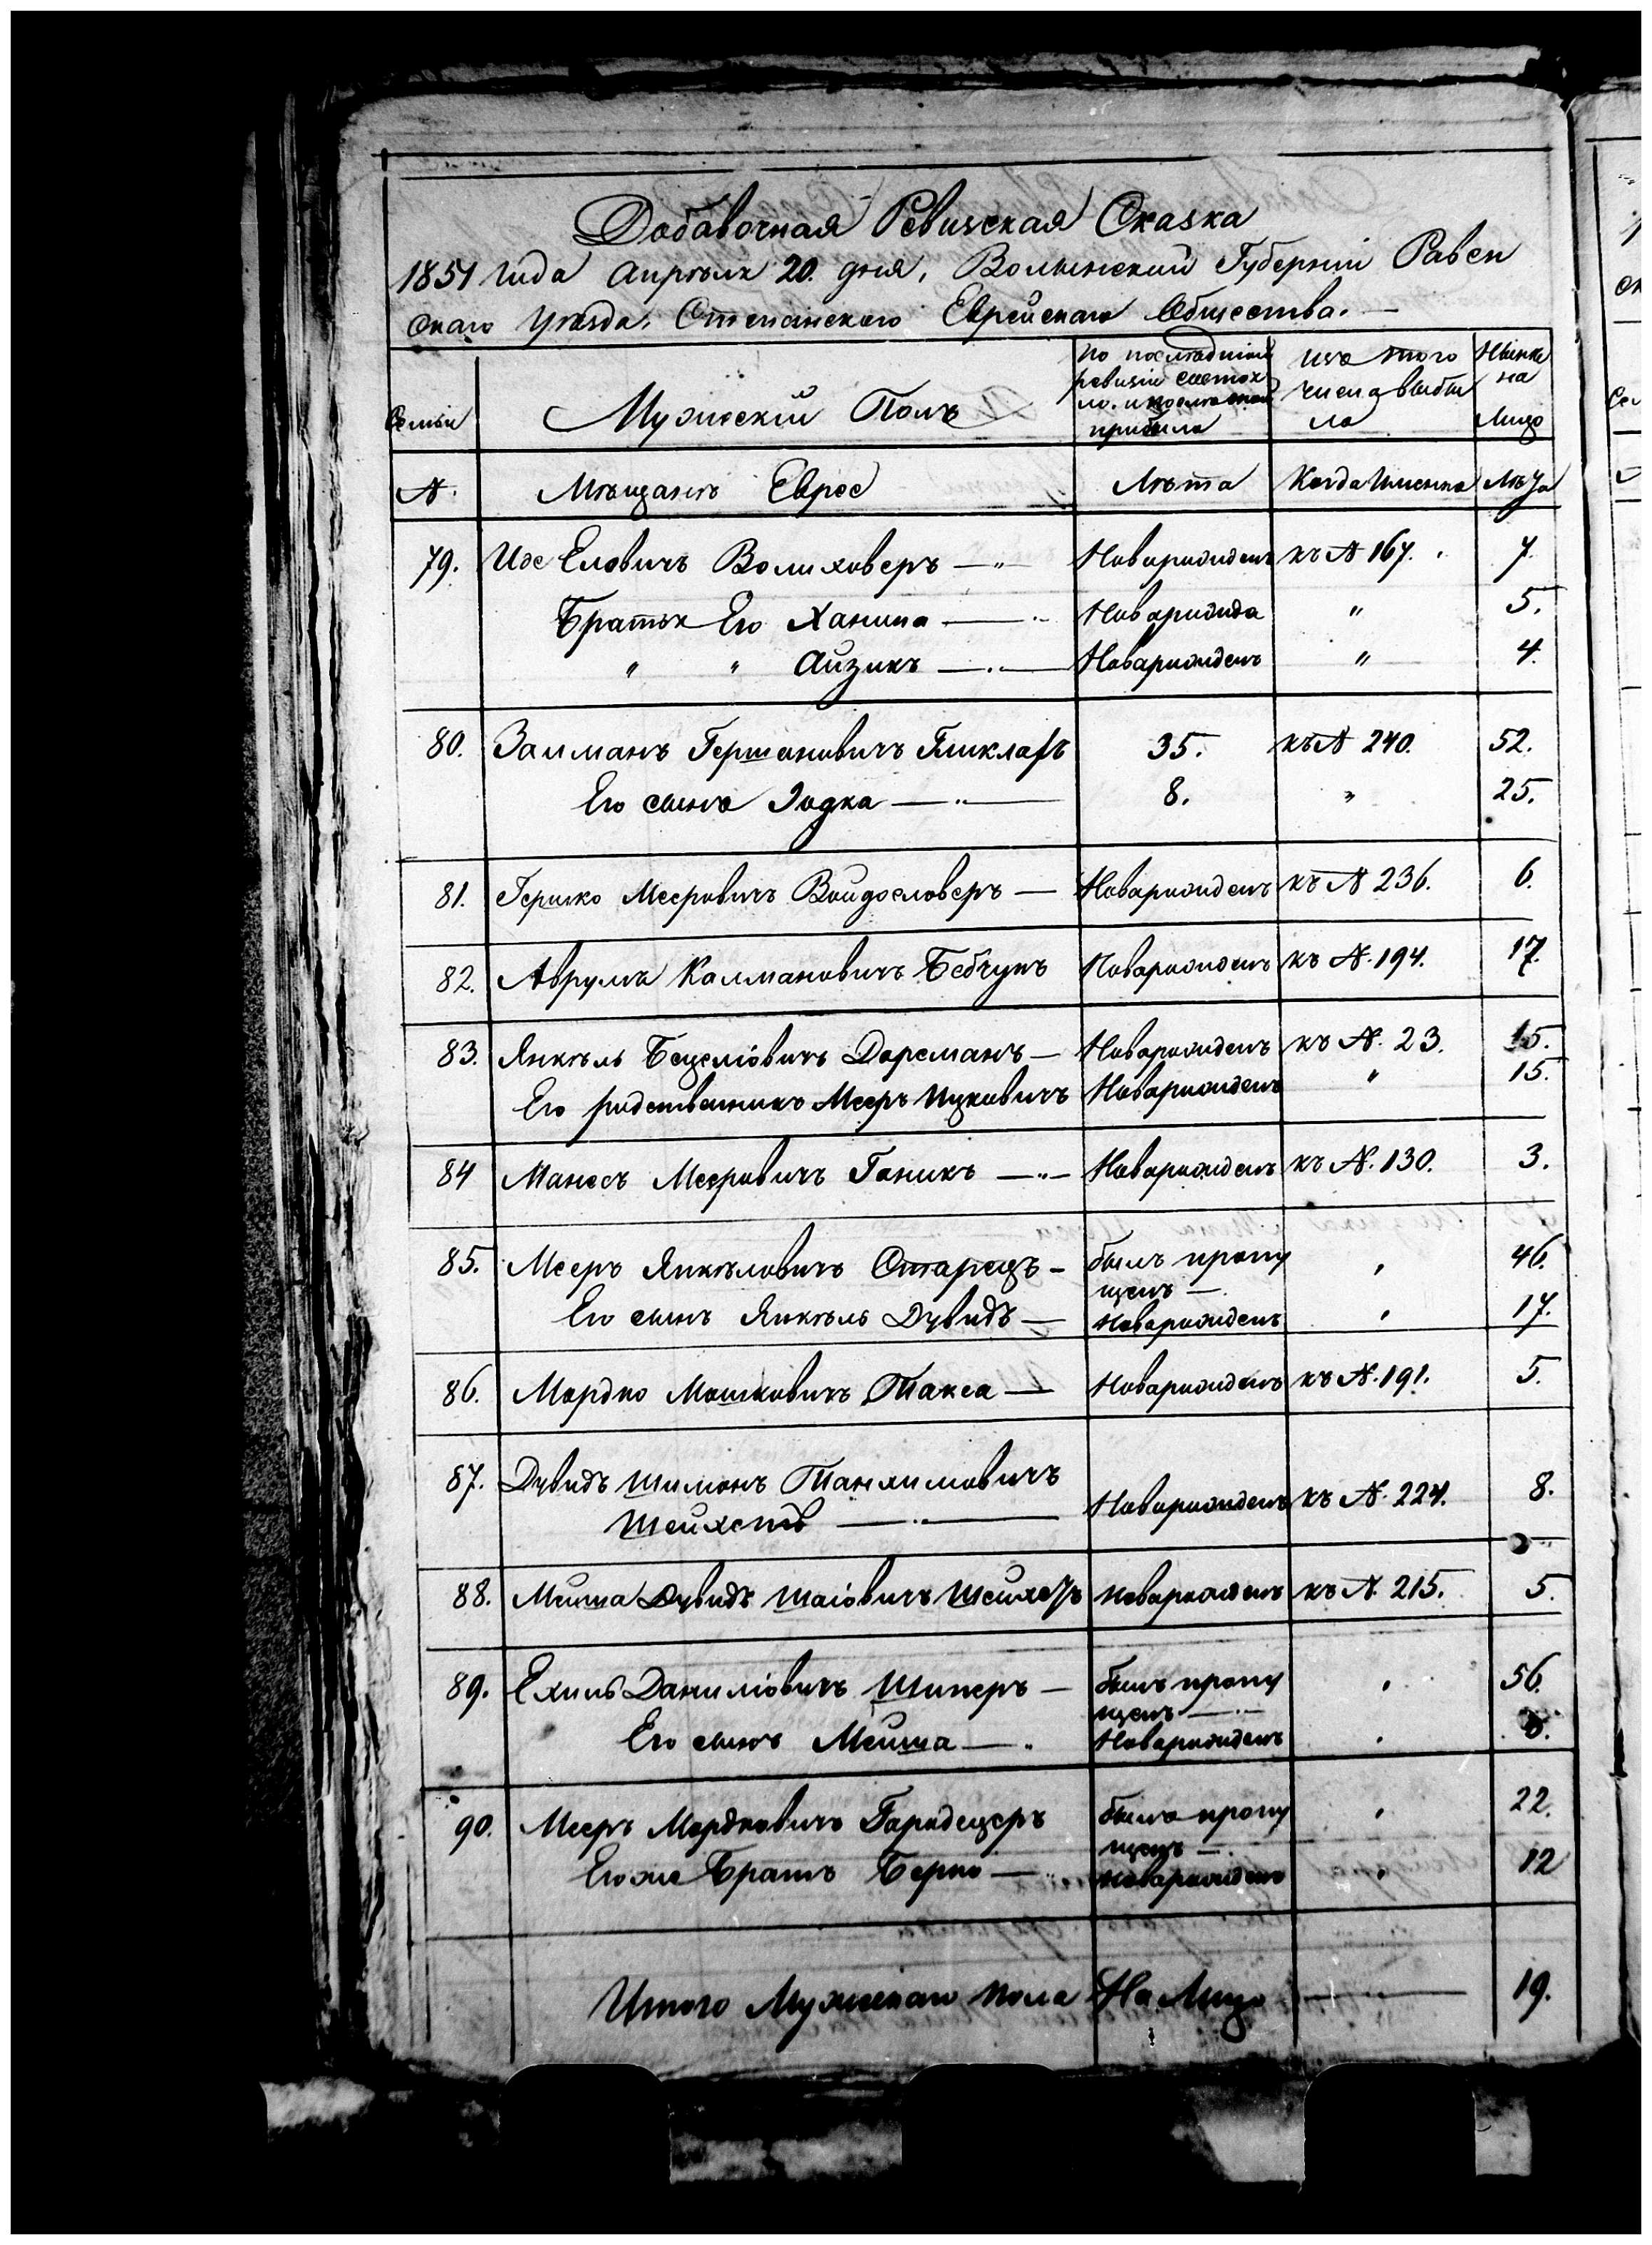 Добавочная Ревизская Сказка
1851 года апрѣля 20. дня, Волынской Губерніи Ровен
скаго Уѣзда. Степанскаго Еврейскаго Общества. —
Семьи
Мужескій Полъ
по послѣдней
ревизіи состоя
ло. и послѣ оной
прибыло
изъ того
числа выбы
ло
Нынѣ
на
Лицо
№.
Мѣщанъ Еврее
Лѣта
Когда Именно
Лѣта
79. Иос Еловичъ Волиховеръ — новорожденъ къ № 167. 7.
Братья Его Ханина — новорожда " 5.
" " Айзикъ — новорожденъ " 4.
80. Залманъ Гершоновичъ Гликлахъ 35. къ № 240. 52.
Его сынъ Іодка — 8. " 25.
81. Гершко Мееровичъ Войдословеръ — новорожденъ къ № 236. 6.
82. Аврумъ Калмановичъ Бебчукъ новорожденъ къ №. 194. 17.
83. Янкѣль Бецеліовичъ Дорсманъ — новорожденъ къ №. 23. 15.
Его родственникъ Мееръ Ицковичъ новорожденъ " 15.
84 Манесъ Мееровичъ Ганикъ — новорожденъ къ №. 130. 3.
85. Мееръ Янкѣловичъ Старецъ — былъ пропу " 46.
щенъ —
Его сынъ Янкѣль Дувидъ — новорожденъ " 17.
86. Мордко Мошковичъ Такса — новорожденъ къ №. 191. 5.
87. Дувидъ Шимонъ Танхимовичъ
Шейхетъ — новорожденъ къ №. 224. 8.
88. Мейша Дувидъ Шаіовичъ Шейхетъ новорожденъ къ № 215. 5.
89. Ехиль Даниліовичъ Шиперъ — былъ пропу " 56.
щенъ —
Его сынъ Мейша — новорожденъ "
90. Мееръ Мордковичъ Гародецеръ былъ пропу " 22.
щенъ —
Его же Братъ Берко — новорожденъ " 12
Итого Мужескаго пола На Лицо — 19.